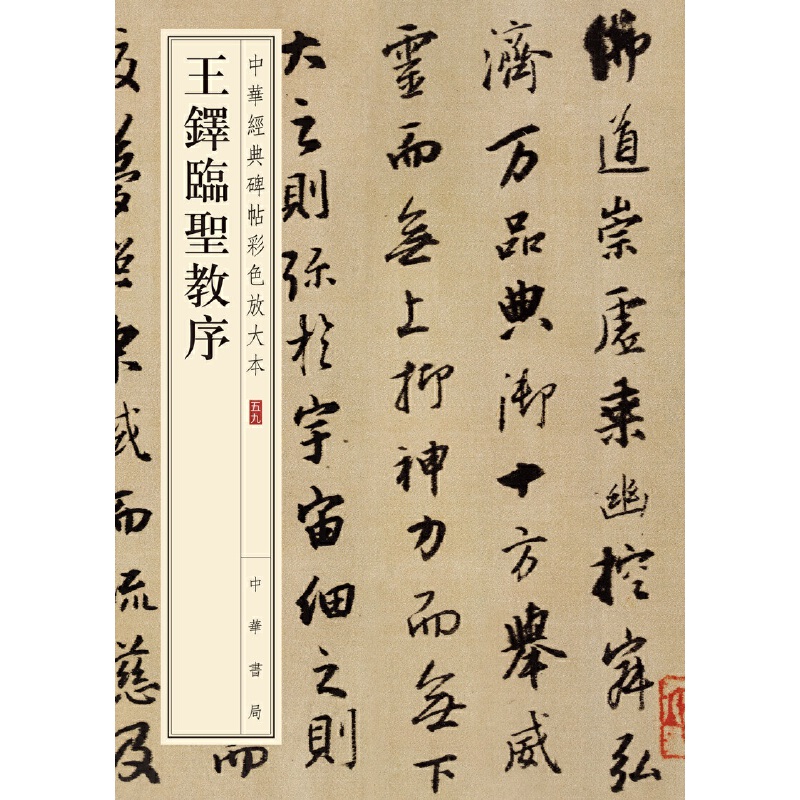 佛道崇虛乘幽控寂弘
濟万品典御十方舉威
靈而無上抑神力而無下
大之則弥於宇宙細之則
而
中華經典碑帖彩色放大本
五九
中華書局
王鐸臨聖教序
夢東域而流慈及